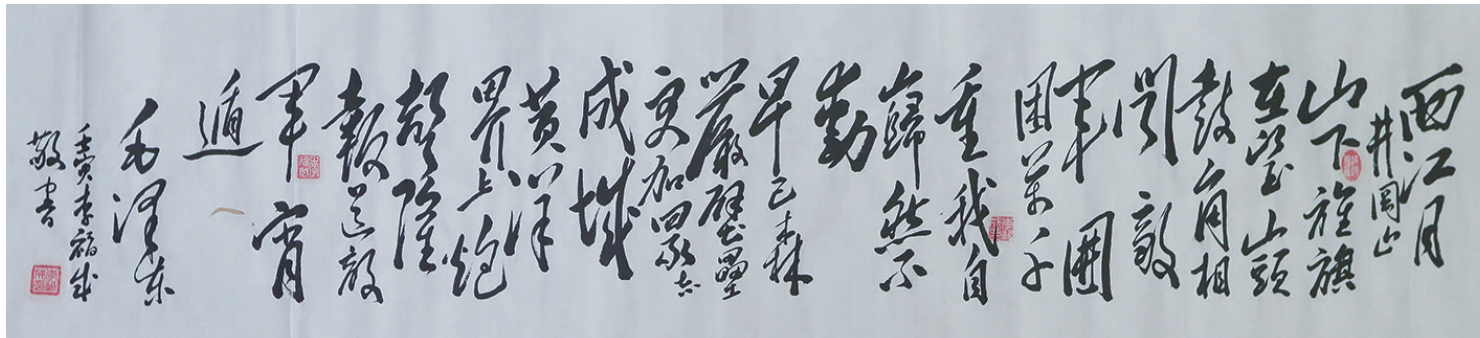 西江月
井岡山
山下旌旗
在望山頭
鼓角相
聞敵
軍圍
困萬千
重我自
巋然不
動
早已森
嚴壁壘
更加眾志
成城
黃洋
界上炮
聲隆
報道敵
軍宵
遁
毛澤東
壬寅李福成
敬書